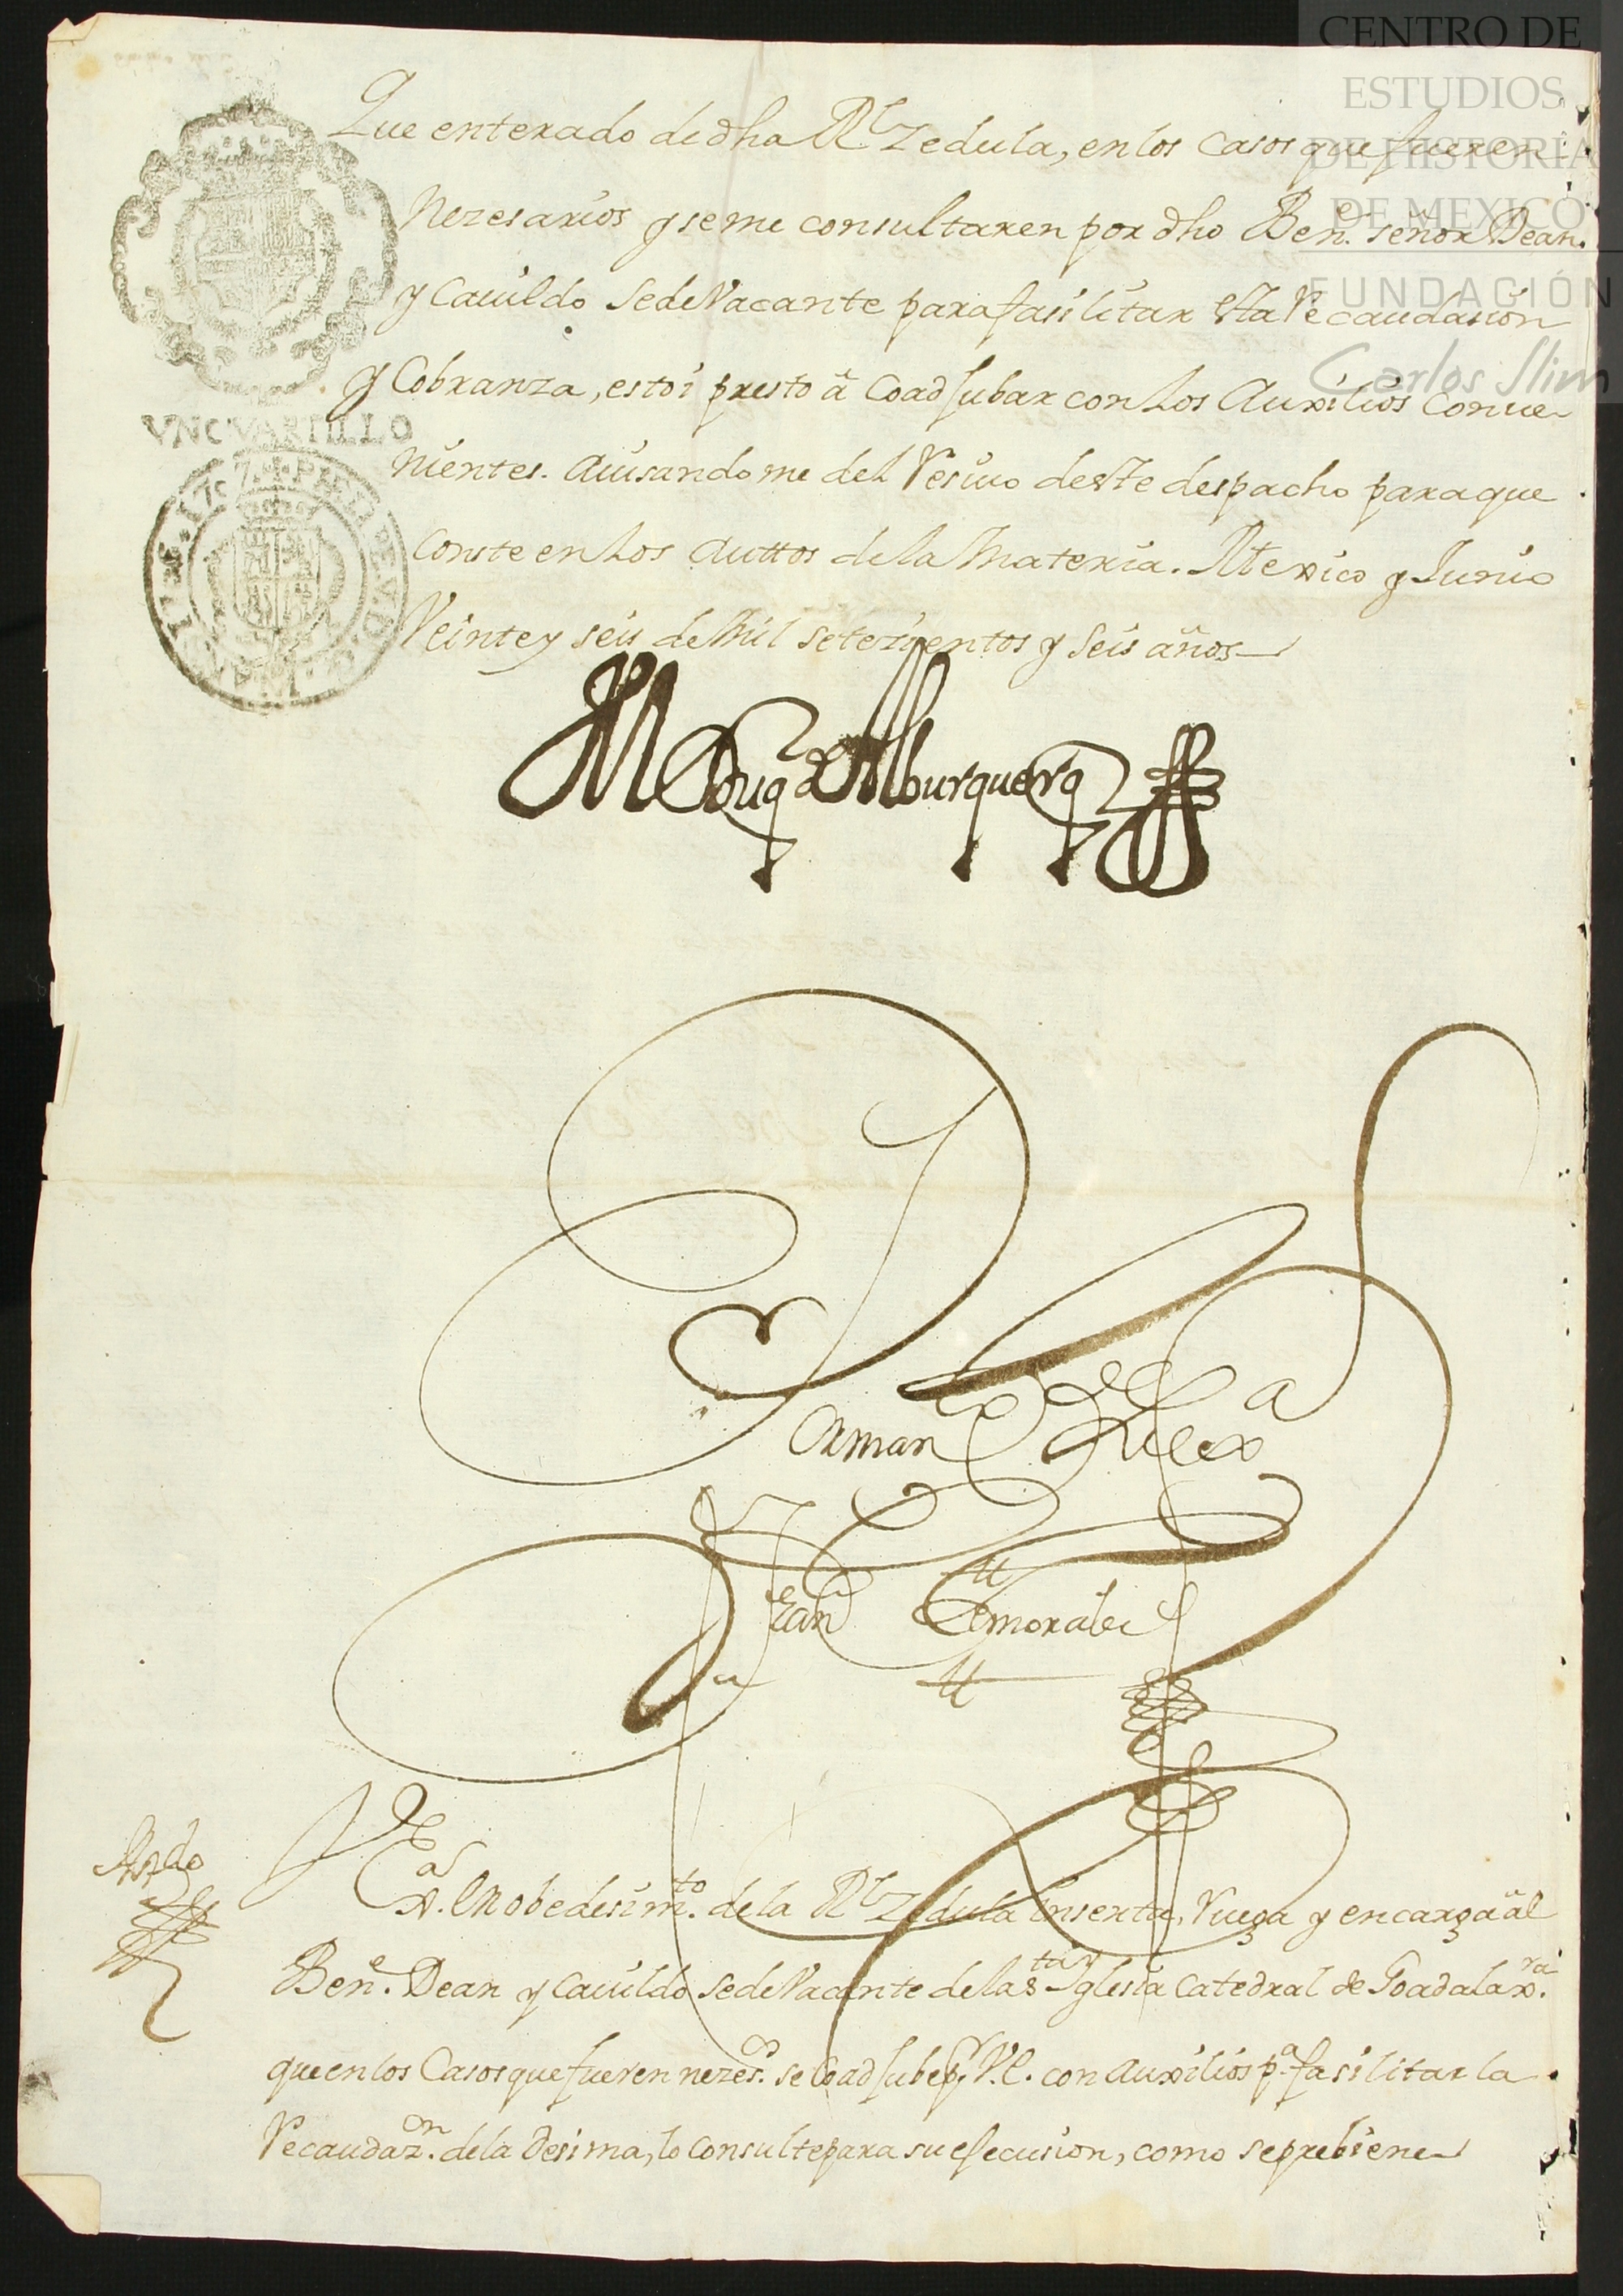 CENTRO DE
ESTUDIOS
DE HISTORIA
DE MEXICO
FUNDACIÓN
Carlos Slim
VN CVARTILLO
Que enterado de dha Rl Zedula, en los casos que fueren
nezesarios y se me consultaren por dho Ben.e señor Dean.
y Cauildo Sede Vacante para fasilitar esta Recaudasion
y Cobranza, estoi presto â Coadjubar con los Auxilios conue-
nientes. Auisandome del Resiuo deste despacho para que
Conste en los Auttos de la materia. Mexico y Junio
Veinte y seis de mil setezientos y seis años
El Duq de Alburquerq
Por man.do de su Ex.a
Juan de Morales
Rzdo
V. Ex.a En obedesim.to de la Rl Zedula inserta, Ruega y encarga âl
Ben.e Dean y Cauildo Sede Vacante de la S.ta Yglesia Catedral de Goadalax.ra
que en los Casos que fueren nezes.os se Coadjube p.r V.E. con auxilios p.a fasilitar la
Recaudaz.on de la Desima, lo consulte para su ejecusion, como se prebiene